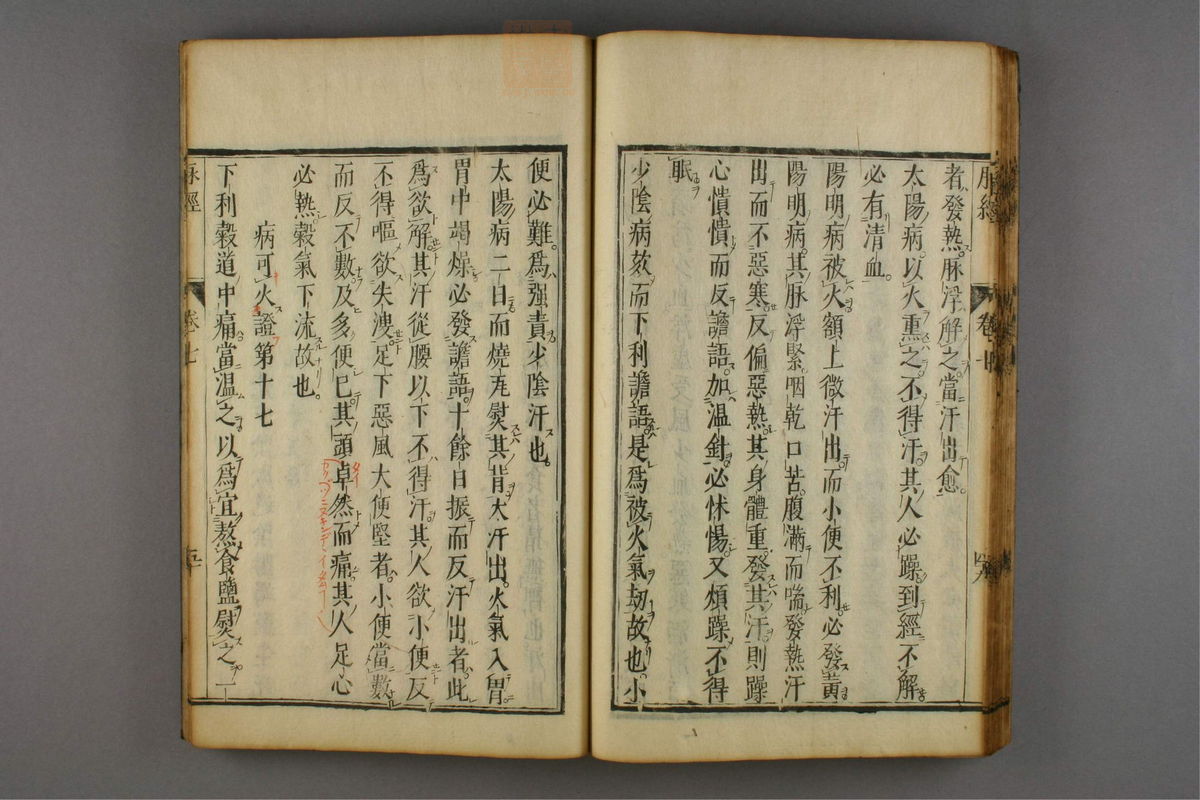 脉經
卷七
者發熱。脉浮。解之。當汗出愈。
太陽病。以火熏之。不得汗。其人必躁。到經不解
必有清血。
陽明病被火。額上微汗出。而小便不利。必發黃
陽明病。其脉浮緊。咽乾口苦。腹滿而喘。發熱汗
出而不惡寒。反偏惡熱。其身體重。發其汗。則躁
心憒憒而反譫語。加温針。必怵惕。又煩躁不得
眠
少陰病。欬而下利譫語。是爲被火氣劫故也。小
便必難。爲强責少陰汗也。
太陽病二日。而燒瓦熨其背。大汗出。火氣入胃。
胃中竭燥。必發譫語。十餘日振而反汗出者。此
爲欲解。其汗從腰以下不得汗。其人欲小便反
不得。嘔欲失溲。足下惡風。大便堅者。小便當數
而反不數。及多便已。其頭卓然而痛。其人足心
必熱。穀氣下流故也。
病可火證第十七
下利。穀道中痛。當温之。以爲宜熬食鹽熨之。一
脉經
卷七
五十